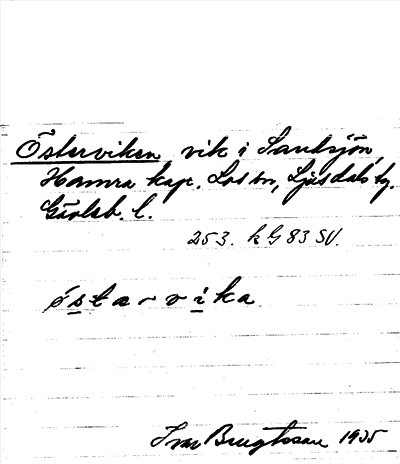 Österviken vik i Sandsjön,
Hamra kap. Los sn, Ljusdals tg.
Gävleb. l.
253. k G 83 SV.
östarvika
Ivar Bengtsson 1935